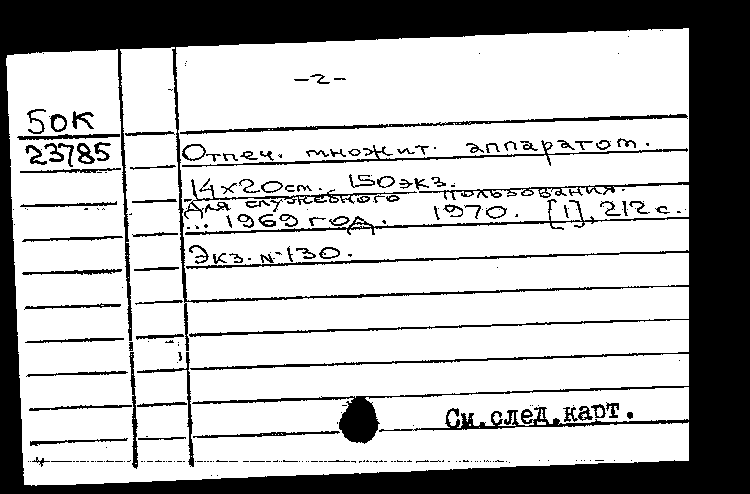 -2-
50К
23785
Отпеч. множит. аппаратом.
14х20см. 150экз.
Для служебного пользования.
... 1969 год. 1970. [1], 212 с.
Экз. №130.
См.след.карт.